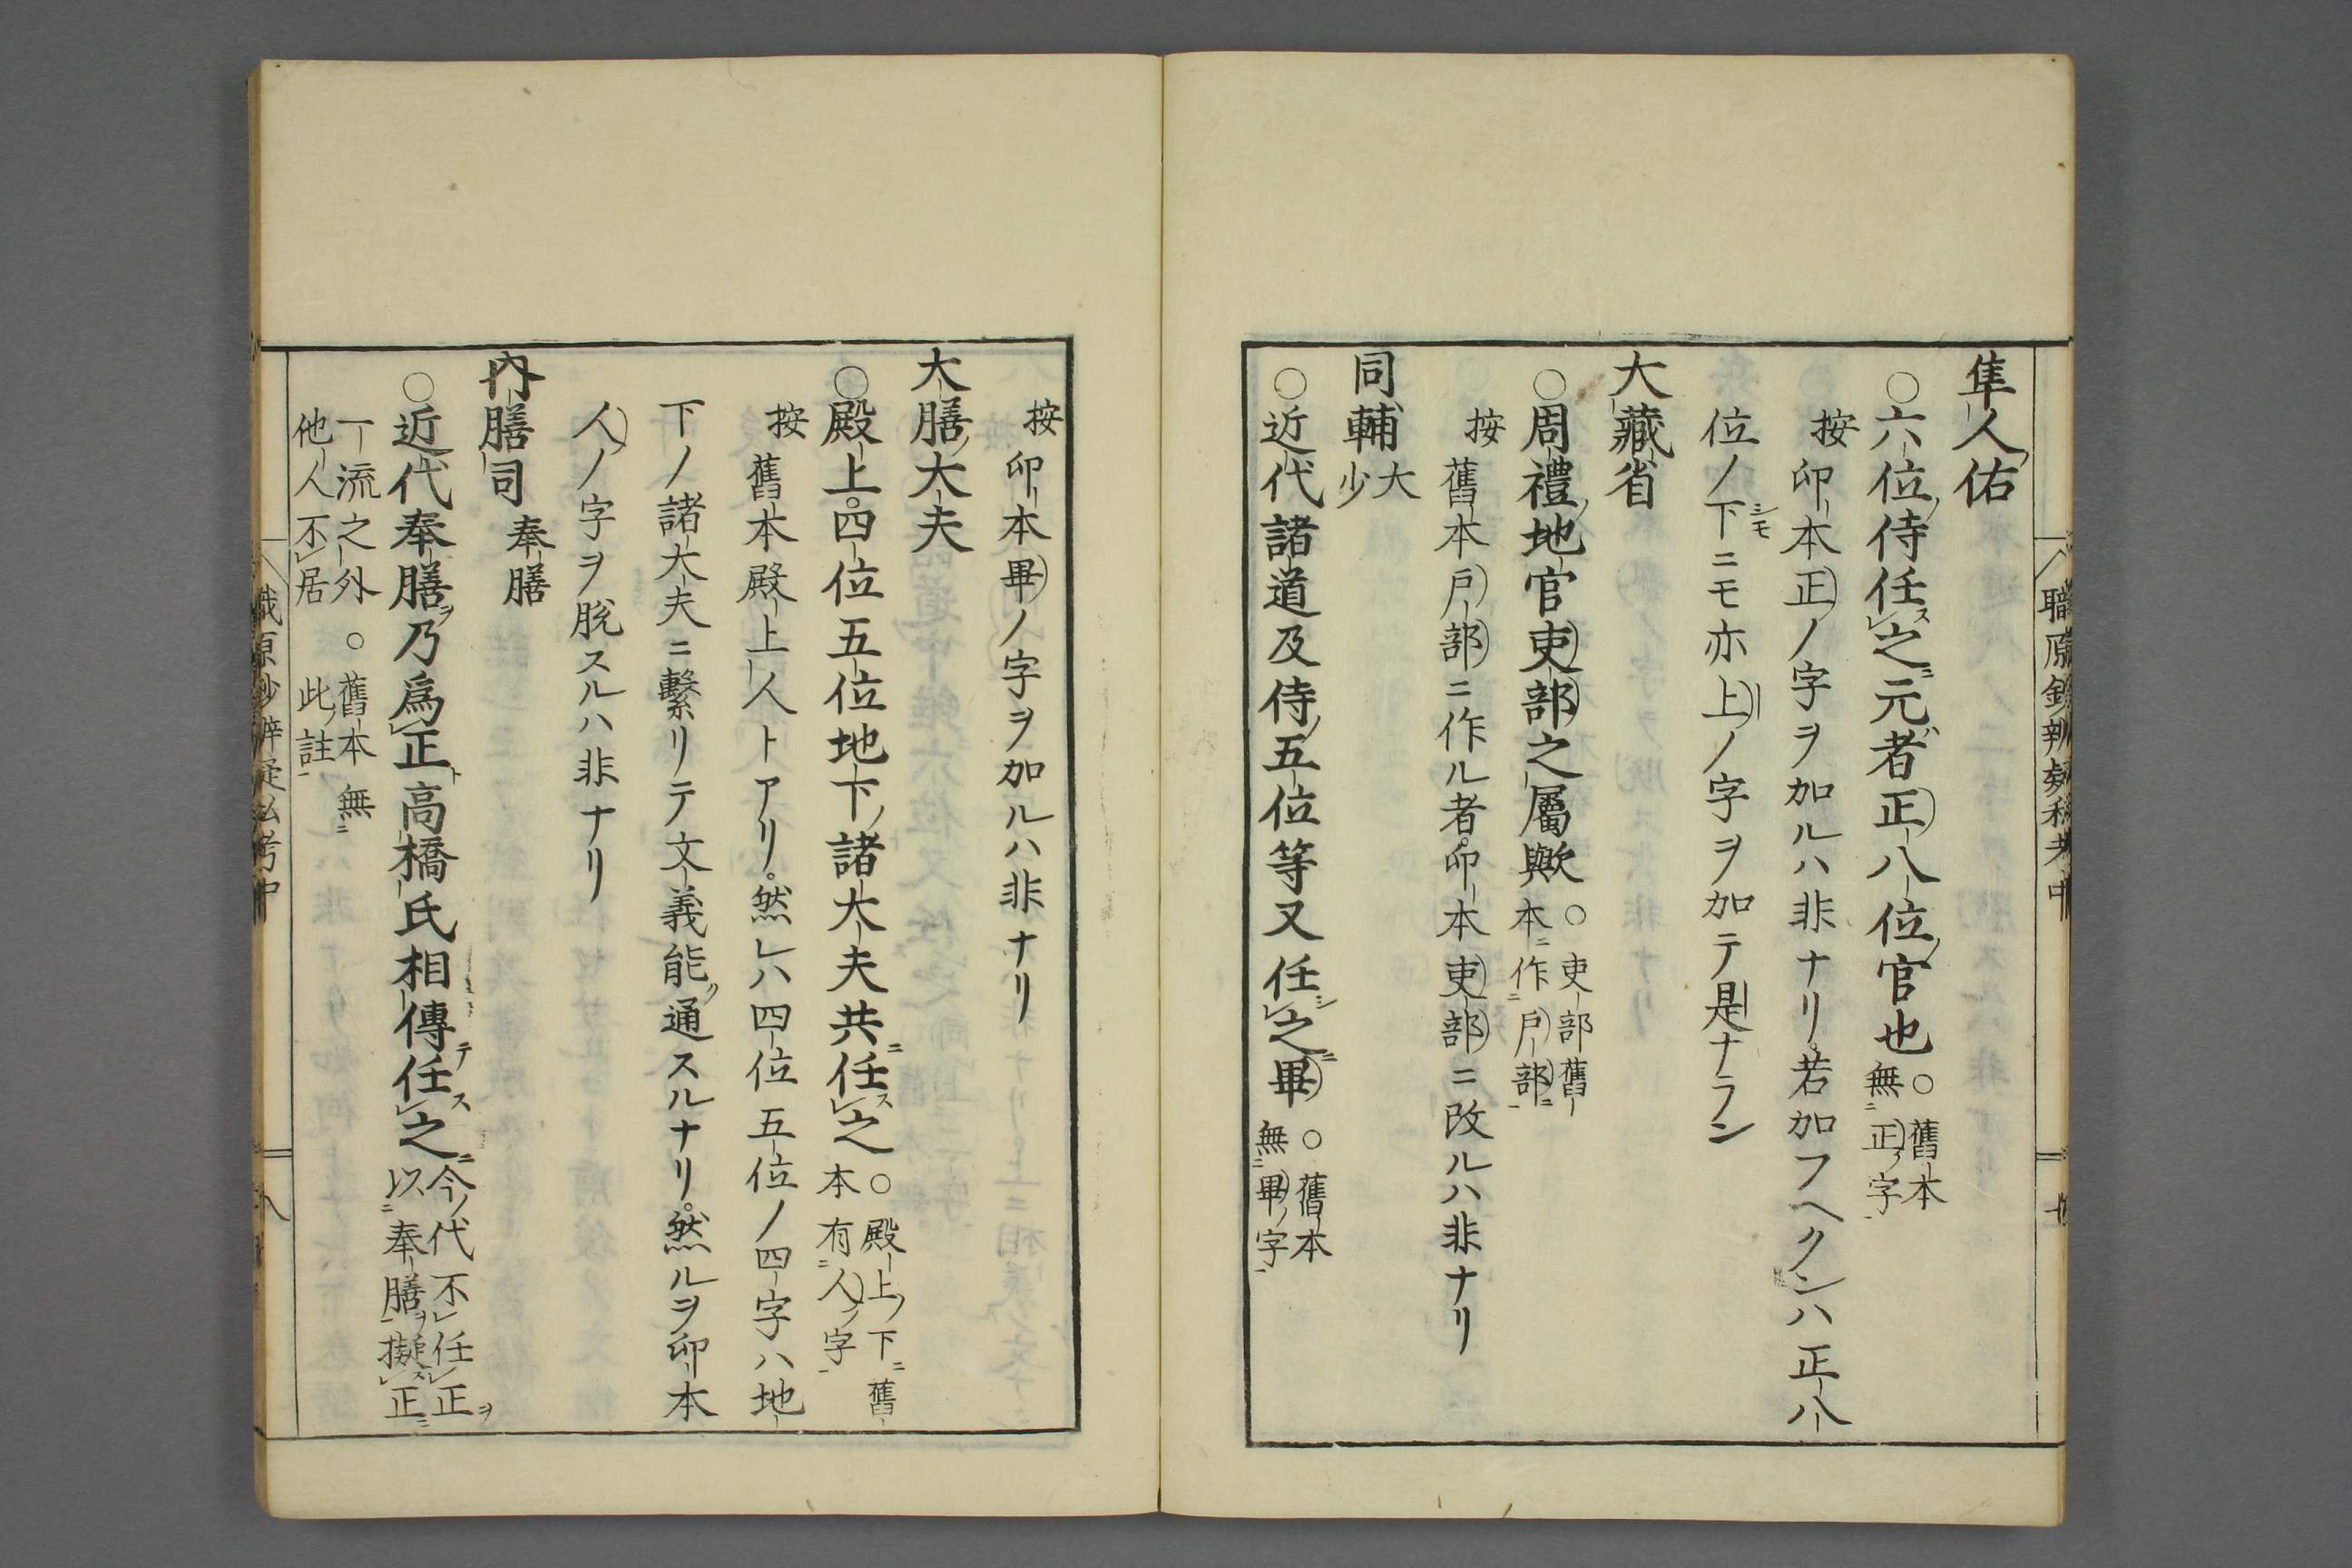 隼人佑
○六位侍任之元者正八位官也○舊本無正字
按印本正ノ字ヲ加ルハ非ナリ若加フヘクンハ正八
位ノ下ニモ亦上ノ字ヲ加テ是ナラン
大藏省
○周禮地官吏部之屬歟○吏部舊本作戸部
按舊本戸部ニ作ル者印本吏部ニ改ルハ非ナリ
同輔大少
○近代諸道及侍五位等又任之畢○舊本無畢字
按印本畢ノ字ヲ加ルハ非ナリ
大膳大夫
○殿上四位五位地下諸大夫共任之○殿上下舊本有人字
按舊本殿上人トアリ然レハ四位五位ノ四字ハ地
下ノ諸大夫ニ繫リテ文義能通スルナリ然ルヲ印本
人ノ字ヲ脫スルハ非ナリ
內膳司奉膳
○近代奉膳乃爲正高橋氏相傳任之今代不任正以奉膳擬正
一流之外他人不居○舊本無此註